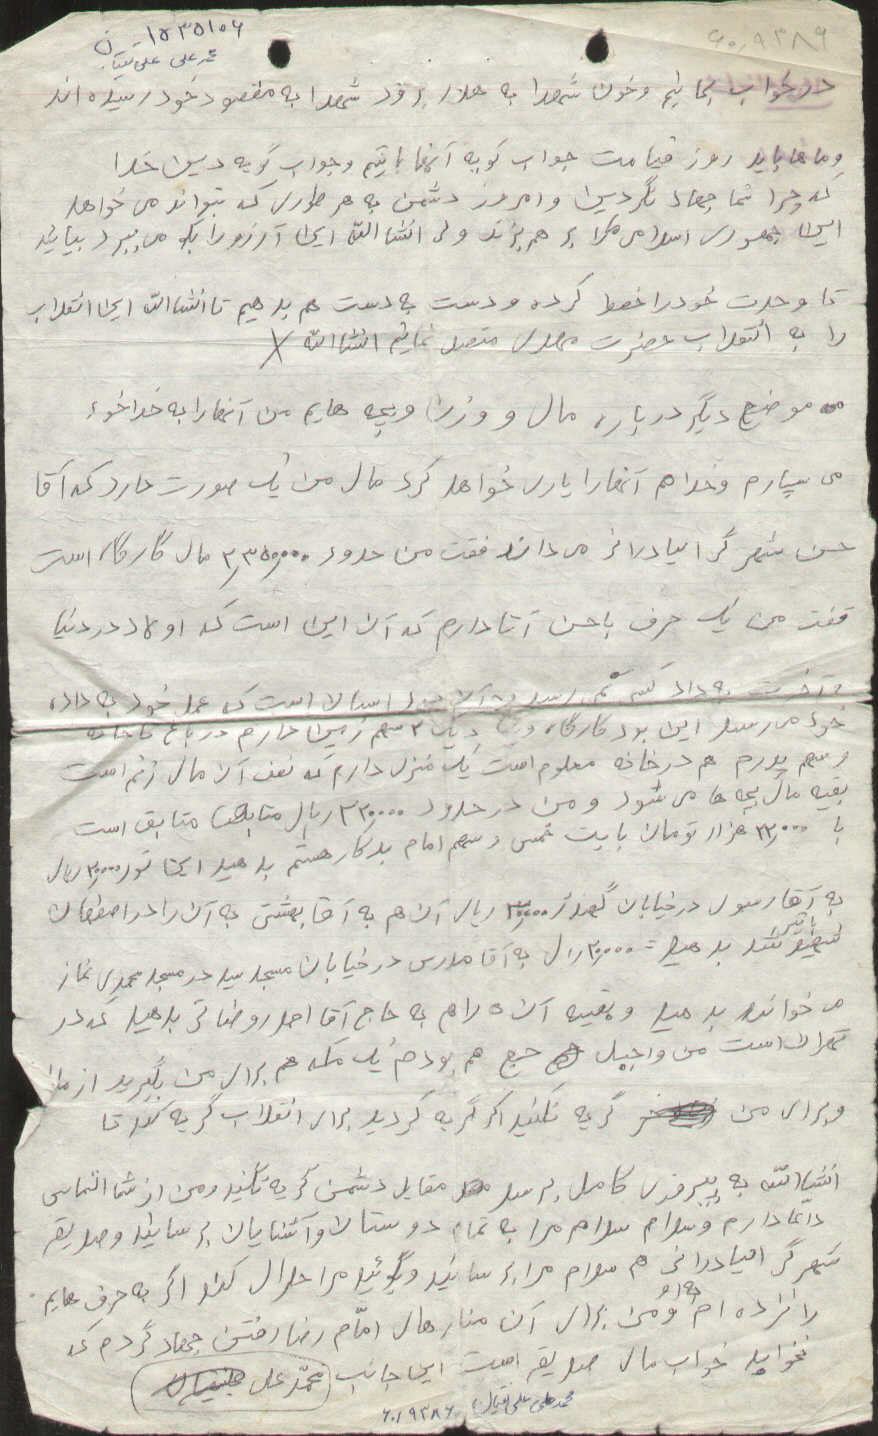 ۱۵۳۵۱۰۶
۶۰٫۹۳۸۹
محمد علی علی
در خواب بمانیم و خون شهدا به هدر برود شهدا به مقصود خود رسیده اند
و ماها باید روز قیامت جواب گو به آنها باشیم و جواب گو به دین خدا
که چرا شما جهاد نکردین و امروز دشمن به هر طوری که بتواند می خواهد
این جمهوری اسلامی را بر هم بزند ولی انشاالله این آرزو را به گور می برد بیائید
تا وحدت خود را حفظ کرده و دست به دست هم بدهیم تا انشاالله این انقلاب
را به انقلاب حضرت مهدی متصل نمائیم انشاالله
موضع دیگر درباره مال و وزن و بچه هایم من آنها را به خدا خود
می سپارم و خدا هم آنها را یاری خواهد کرد مال من یک صورت دارد که آقا
حسن شهرگر امیادرانی می داند فقت من حدود ۲٫۳۵۰٫۰۰۰ مال کارگاه است
فقت من یک حرف با حسن آقا دارم که آن این است که اولاد در دنیا
و آخرت به داد کسی نمی رسد و است که عمل خود به داد
خود می رسد این بود کارگاه و یک ۲ سهم زمین دارم در باغ
و سهم پدرم هم در خانه معلوم است یک منزل دارم که نصف آن مال زنم است
بقیه مال بچه ها می شود و من در حدود ۲۲۰٫۰۰۰ ریال متابق است
با ۲۲٫۰۰۰ هزار تومان بابت خمس و سهم امام بدکار هستم بدهید این تور ۲۰٫۰۰۰ ریال
به آقا رسول در خیابان ریال آن هم به آقا بهشتی به آن را در اصفهان
بدهید ۲۰٫۰۰۰ ریال به آقا مدرس در خیابان مسجد سید در مسجد محمدی نماز
می خواند بدهید و بقیه آن را هم به حاج آقا احمد بدهید که در
تهران است من واجبل حج هم بودم یک مکه هم برای من بگیرید از مال
و برای من گریه نکنید اگر گریه کردید برای انقلاب گریه کنید تا
انشاالله به پیروزی کامل برسد مقابل دشمن گریه نکنید و من از شما التماس
دعا دارم و سلام سلام مرا به تمام دوستان و آشنایان برسانید و صدیقه
شهرگر امیادرانی هم سلام مرا برسانید و بگوئید مرا حلال کند اگر به حرف هایم
به او
را نزده ام و من برای آن منارهای امام رضا رفتن جهاد کردم که
نخوابید خواب مال صدیقه است این جانب محمد علی
محمد علی علی
۶۰٫۹۳۸۶